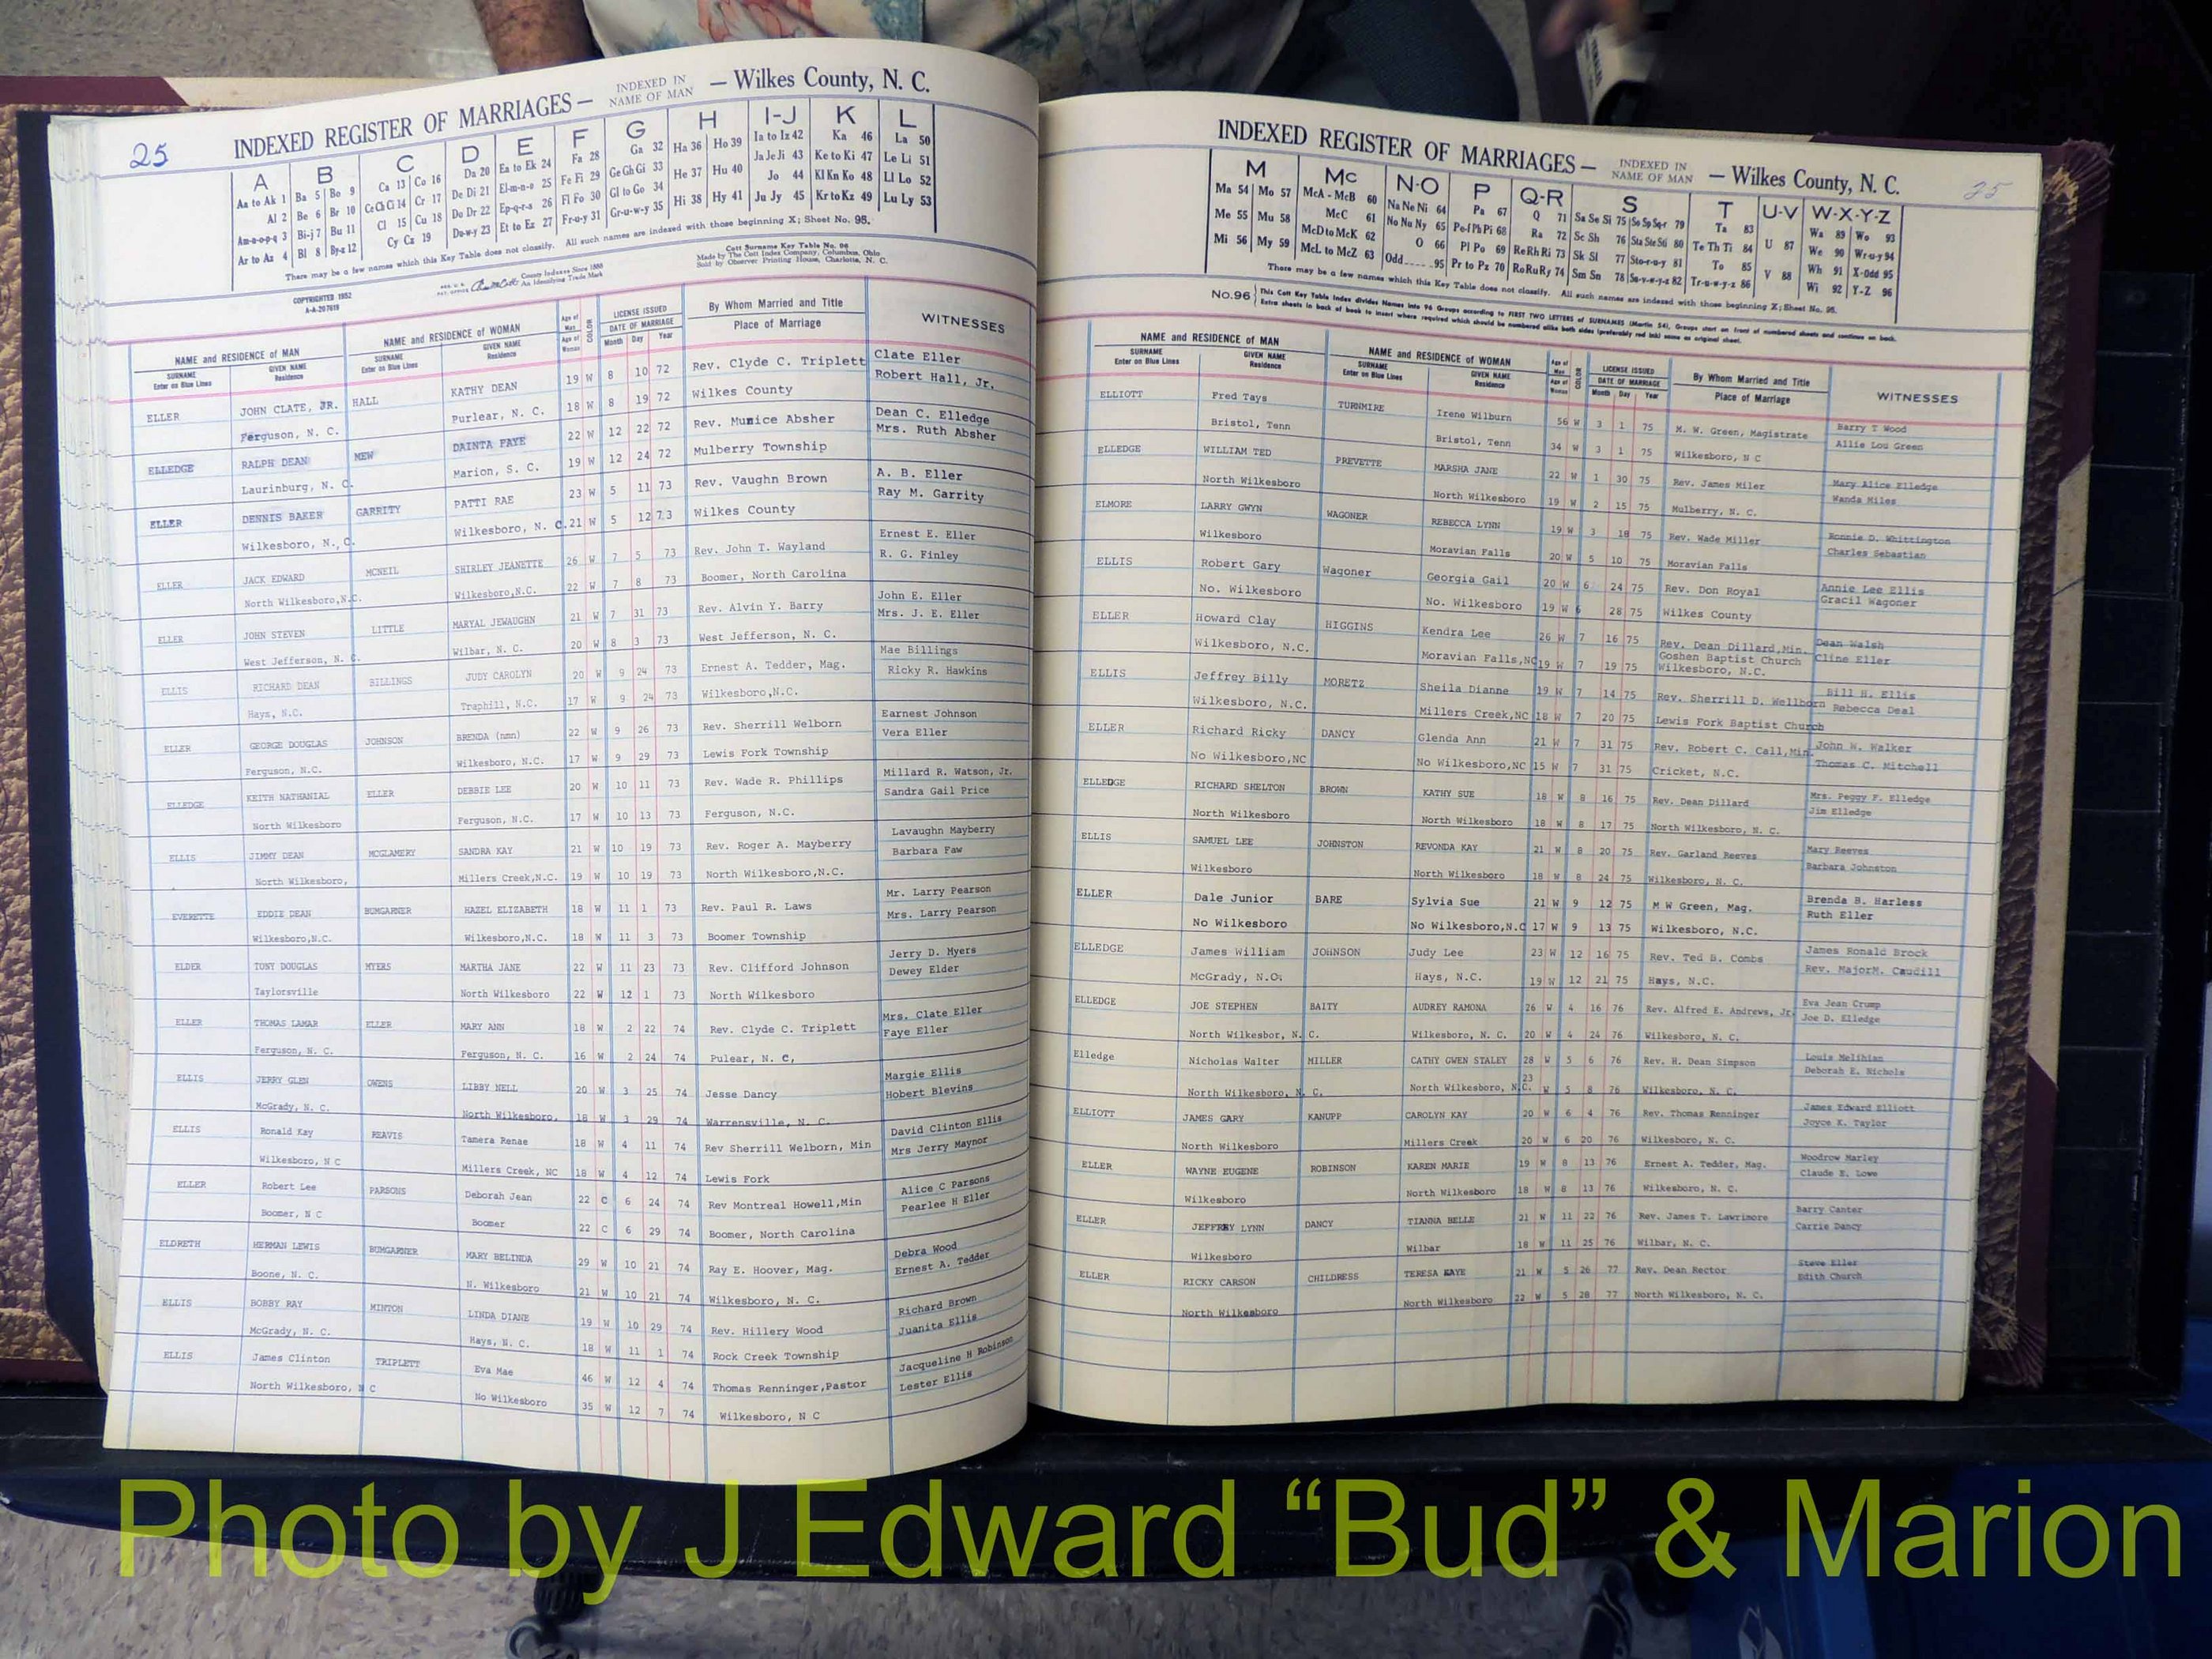 25
INDEXED REGISTER OF MARRIAGES — INDEXED IN NAME OF MAN — Wilkes County, N. C.
A B C D E F G H I-J K L
Aa to Ak 1 Ba 5 Bo 9 Ca 13 Co 16 Da 20 Ea to Ek 24 Fa 28 Ga 32 Ha 36 Ho 39 Ia to Iz 42 Ka 46 La 50
Al 2 Be 6 Br 10 Ce Ch Ci 14 Cr 17 De Di 21 El-m-n-o 25 Fe Fi 29 Ge Gh Gi 33 He 37 Hu 40 Ja Je Ji 43 Ke to Ki 47 Le Li 51
Am-n-o-p-q 3 Bi-j 7 Bu 11 Cl 15 Cu 18 Do Dr 22 Ep-q-r-s 26 Fl Fo 30 Gl to Go 34 Hi 38 Hy 41 Jo 44 Kl Kn Ko 48 Ll Lo 52
Ar to Az 4 Bl 8 By-z 12 Cy Cz 19 Du-w-y 23 Et to Ez 27 Fr-u-y 31 Gr-u-w-y 35 Ju Jy 45 Kr to Kz 49 Lu Ly 53
There may be a few names which this Key Table does not classify. All such names are indexed with those beginning X; Sheet No. 95.
COPYRIGHTED 1952
County Indexes Since 1888
An Identifying Trade Mark
Cott Surname Key Table No. 96
Made by The Cott Index Company, Columbus, Ohio
Sold by Observer Printing House, Charlotte, N. C.
NAME and RESIDENCE of MAN NAME and RESIDENCE of WOMAN Age of Man Age of Woman COLOR LICENSE ISSUED DATE OF MARRIAGE By Whom Married and Title Place of Marriage WITNESSES
SURNAME Enter on Blue Lines GIVEN NAME Residence SURNAME Enter on Blue Lines GIVEN NAME Residence Month Day Year
ELLER JOHN CLATE, JR. HALL KATHY DEAN 19 W 8 10 72 Rev. Clyde C. Triplett Clate Eller
Ferguson, N. C. Purlear, N. C. 18 W 8 19 72 Wilkes County Robert Hall, Jr.
ELLEDGE RALPH DEAN NEW DAINTA FAYE 22 W 12 22 72 Rev. Munice Absher Dean C. Elledge
Laurinburg, N. C. Marion, S. C. 19 W 12 24 72 Mulberry Township Mrs. Ruth Absher
ELLER DENNIS BAKER GARRITY PATTI RAE 23 W 5 11 73 Rev. Vaughn Brown A. B. Eller
Wilkesboro, N. C. Wilkesboro, N. C. 21 W 5 12 73 Wilkes County Ray M. Garrity
ELLER JACK EDWARD MCNEIL SHIRLEY JEANETTE 26 W 7 5 73 Rev. John T. Wayland Ernest E. Eller
North Wilkesboro,N.C. Wilkesboro,N.C. 22 W 7 8 73 Boomer, North Carolina R. G. Finley
ELLER JOHN STEVEN LITTLE MARYAL JEWAUGHN 21 W 7 31 73 Rev. Alvin Y. Barry John E. Eller
West Jefferson, N. C. Wilbar, N. C. 20 W 8 3 73 West Jefferson, N. C. Mrs. J. E. Eller
ELLIS RICHARD DEAN BILLINGS JUDY CAROLYN 20 W 9 24 73 Ernest A. Tedder, Mag. Mae Billings
Hays, N.C. Traphill, N.C. 17 W 9 24 73 Wilkesboro,N.C. Ricky R. Hawkins
ELLER GEORGE DOUGLAS JOHNSON BRENDA (nmn) 22 W 9 26 73 Rev. Sherrill Welborn Earnest Johnson
Ferguson, N.C. Wilkesboro, N.C. 17 W 9 29 73 Lewis Fork Township Vera Eller
ELLEDGE KEITH NATHANIAL ELLER DEBBIE LEE 20 W 10 11 73 Rev. Wade R. Phillips Millard R. Watson, Jr.
North Wilkesboro Ferguson, N.C. 17 W 10 13 73 Ferguson, N.C. Sandra Gail Price
ELLIS JIMMY DEAN MCGLAMERY SANDRA KAY 21 W 10 19 73 Rev. Roger A. Mayberry Lavaughn Mayberry
North Wilkesboro, Millers Creek,N.C. 19 W 10 19 73 North Wilkesboro,N.C. Barbara Faw
EVERETTE EDDIE DEAN BUMGARNER HAZEL ELIZABETH 18 W 11 1 73 Rev. Paul R. Laws Mr. Larry Pearson
Wilkesboro,N.C. Wilkesboro,N.C. 18 W 11 3 73 Boomer Township Mrs. Larry Pearson
ELDER TONY DOUGLAS MYERS MARTHA JANE 22 W 11 23 73 Rev. Clifford Johnson Jerry D. Myers
Taylorsville North Wilkesboro 22 W 12 1 73 North Wilkesboro Dewey Elder
ELLER THOMAS LAMAR ELLER MARY ANN 18 W 2 22 74 Rev. Clyde C. Triplett Mrs. Clate Eller
Ferguson, N. C. Ferguson, N. C. 16 W 2 24 74 Pulear, N. C, Faye Eller
ELLIS JERRY GLEN OWENS LIBBY NELL 20 W 3 25 74 Jesse Dancy Margie Ellis
McGrady, N. C. North Wilkesboro, 18 W 3 29 74 Warrensville, N. C. Hobert Blevins
ELLIS Ronald Kay REAVIS Tamera Renae 18 W 4 11 74 Rev Sherrill Welborn, Min David Clinton Ellis
Wilkesboro, N C Millers Creek, NC 18 W 4 12 74 Lewis Fork Mrs Jerry Maynor
ELLER Robert Lee PARSONS Deborah Jean 22 C 6 24 74 Rev Montreal Howell,Min Alice C Parsons
Boomer, N C Boomer 22 C 6 29 74 Boomer, North Carolina Pearlee H Eller
ELDRETH HERMAN LEWIS BUMGARNER MARY BELINDA 29 W 10 21 74 Ray E. Hoover, Mag. Debra Wood
Boone, N. C. N. Wilkesboro 21 W 10 21 74 Wilkesboro, N. C. Ernest A. Tedder
ELLIS BOBBY RAY MINTON LINDA DIANE 19 W 10 29 74 Rev. Hillery Wood Richard Brown
McGrady, N. C. Hays, N. C. 18 W 11 1 74 Rock Creek Township Juanita Ellis
ELLIS James Clinton TRIPLETT Eva Mae 46 W 12 4 74 Thomas Renninger,Pastor Jacqueline H Robinson
North Wilkesboro, N C No Wilkesboro 35 W 12 7 74 Wilkesboro, N C Lester Ellis
INDEXED REGISTER OF MARRIAGES — INDEXED IN NAME OF MAN — Wilkes County, N. C.
25
M Mc N-O P Q-R S T U-V W-X-Y-Z
Ma 54 Mo 57 McA - McB 60 Na Ne Ni 64 Pa 67 Q 71 Sa Se Si 75 So Sp Sq-r 79 Ta 83 U 87 Wa 89 Wo 93
Me 55 Mu 58 McC 61 No Nu Ny 65 Pe-f Ph Pi 68 Ra 72 Sc Sh 76 Sta Ste Sti 80 Te Th Ti 84 V 88 We 90 Wr-u-y 94
Mi 56 My 59 McD to McK 62 O 66 Pl Po 69 Re Rh Ri 73 Sk Sl 77 Sto-r-u-y 81 To 85 Wh 91 X-Odd 95
McL to McZ 63 Odd 95 Pr to Pz 70 Ro Ru Ry 74 Sm Sn 78 Su-v-w-y-z 82 Tr-u-w-y-z 86 Wi 92 Y-Z 96
There may be a few names which this Key Table does not classify. All such names are indexed with those beginning X; Sheet No. 95.
No.96 This Cott Key Table Index divides Names into 96 Groups according to FIRST TWO LETTERS of SURNAMES (Martin 54), Groups start on front of numbered sheets and continue on back.
Extra sheets in back of book to insert where required which should be numbered alike both sides (preferably red ink) same as original sheet.
NAME and RESIDENCE of MAN NAME and RESIDENCE of WOMAN Age of Man Age of Woman COLOR LICENSE ISSUED DATE OF MARRIAGE By Whom Married and Title Place of Marriage WITNESSES
SURNAME Enter on Blue Lines GIVEN NAME Residence SURNAME Enter on Blue Lines GIVEN NAME Residence Month Day Year
ELLIOTT Fred Tays TURNMIRE Irene Wilburn 56 W 3 1 75 M. W. Green, Magistrate Barry T Wood
Bristol, Tenn Bristol, Tenn 34 W 3 1 75 Wilkesboro, N C Allie Lou Green
ELLEDGE WILLIAM TED PREVETTE MARSHA JANE 22 W 1 30 75 Rev. James Miler Mary Alice Elledge
North Wilkesboro North Wilkesboro 19 W 2 15 75 Mulberry, N. C. Wanda Miles
ELMORE LARRY GWYN WAGONER REBECCA LYNN 19 W 3 18 75 Rev. Wade Miller Ronnie D. Whittington
Wilkesboro Moravian Falls 20 W 5 10 75 Moravian Falls Charles Sebastian
ELLIS Robert Gary Wagoner Georgia Gail 20 W 6 24 75 Rev. Don Royal Annie Lee Ellis
No. Wilkesboro No. Wilkesboro 19 W 6 28 75 Wilkes County Gracil Wagoner
ELLER Howard Clay HIGGINS Kendra Lee 26 W 7 16 75 Rev. Dean Dillard,Min. Dean Walsh
Wilkesboro, N.C. Moravian Falls,NC 19 W 7 19 75 Goshen Baptist Church Wilkesboro, N.C. Cline Eller
ELLIS Jeffrey Billy MORETZ Sheila Dianne 19 W 7 14 75 Rev. Sherrill D. Wellborn Bill H. Ellis
Wilkesboro, N.C. Millers Creek,NC 18 W 7 20 75 Lewis Fork Baptist Church Rebecca Deal
ELLER Richard Ricky DANCY Glenda Ann 21 W 7 31 75 Rev. Robert C. Call,Min. John W. Walker
No Wilkesboro,NC No Wilkesboro,NC 15 W 7 31 75 Cricket, N.C. Thomas C. Mitchell
ELLEDGE RICHARD SHELTON BROWN KATHY SUE 18 W 8 16 75 Rev. Dean Dillard Mrs. Peggy F. Elledge
North Wilkesboro North Wilkesboro 18 W 8 17 75 North Wilkesboro, N. C. Jim Elledge
ELLIS SAMUEL LEE JOHNSTON REVONDA KAY 21 W 8 20 75 Rev. Garland Reeves Mary Reeves
Wilkesboro North Wilkesboro 18 W 8 24 75 Wilkesboro, N. C. Barbara Johnston
ELLER Dale Junior BARE Sylvia Sue 21 W 9 12 75 M W Green, Mag. Brenda B. Harless
No Wilkesboro No Wilkesboro,N.C 17 W 9 13 75 Wilkesboro, N.C. Ruth Eller
ELLEDGE James William JOHNSON Judy Lee 23 W 12 16 75 Rev. Ted B. Combs James Ronald Brock
McGrady, N.C. Hays, N.C. 19 W 12 21 75 Hays, N.C. Rev. MajorM. Caudill
ELLEDGE JOE STEPHEN BAITY AUDREY RAMONA 26 W 4 16 76 Rev. Alfred E. Andrews, Jr. Eva Jean Crump
North Wilkesbor, N. C. Wilkesboro, N. C. 20 W 4 24 76 Wilkesboro, N. C. Joe D. Elledge
Elledge Nicholas Walter MILLER CATHY GWEN STALEY 28 W 5 6 76 Rev. H. Dean Simpson Louis Melihian
North Wilkesboro, N. C. North Wilkesboro, N.C. 23 W 5 8 76 Wilkesboro, N. C. Deborah E. Nichols
ELLIOTT JAMES GARY KANUPP CAROLYN KAY 20 W 6 4 76 Rev. Thomas Renninger James Edward Elliott
North Wilkesboro Millers Creek 20 W 6 20 76 Wilkesboro, N. C. Joyce K. Taylor
ELLER WAYNE EUGENE ROBINSON KAREN MARIE 19 W 8 13 76 Ernest A. Tedder, Mag. Woodrow Marley
Wilkesboro North Wilkesboro 18 W 8 13 76 Wilkesboro, N. C. Claude E. Lowe
ELLER JEFFREY LYNN DANCY TIANNA BELLE 21 W 11 22 76 Rev. James T. Lawrimore Barry Canter
Wilkesboro Wilbar 18 W 11 25 76 Wilbar, N. C. Carrie Dancy
ELLER RICKY CARSON CHILDRESS TERESA KAYE 21 W 5 26 77 Rev. Dean Rector Steve Eller
North Wilkesboro North Wilkesboro 22 W 5 28 77 North Wilkesboro, N. C. Edith Church
Photo by J Edward “Bud” & Marion